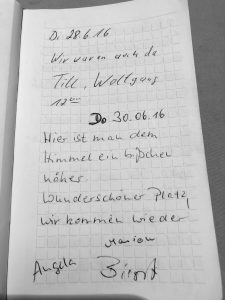 Di 28.6.16
Wir waren auch da
Till, Wolfgang
12
Do 30.06.16
Hier ist man dem
Himmel ein bißchen
näher.
Wunderschöner Platz,
wir kommen wieder
Marion
Angela Birgit